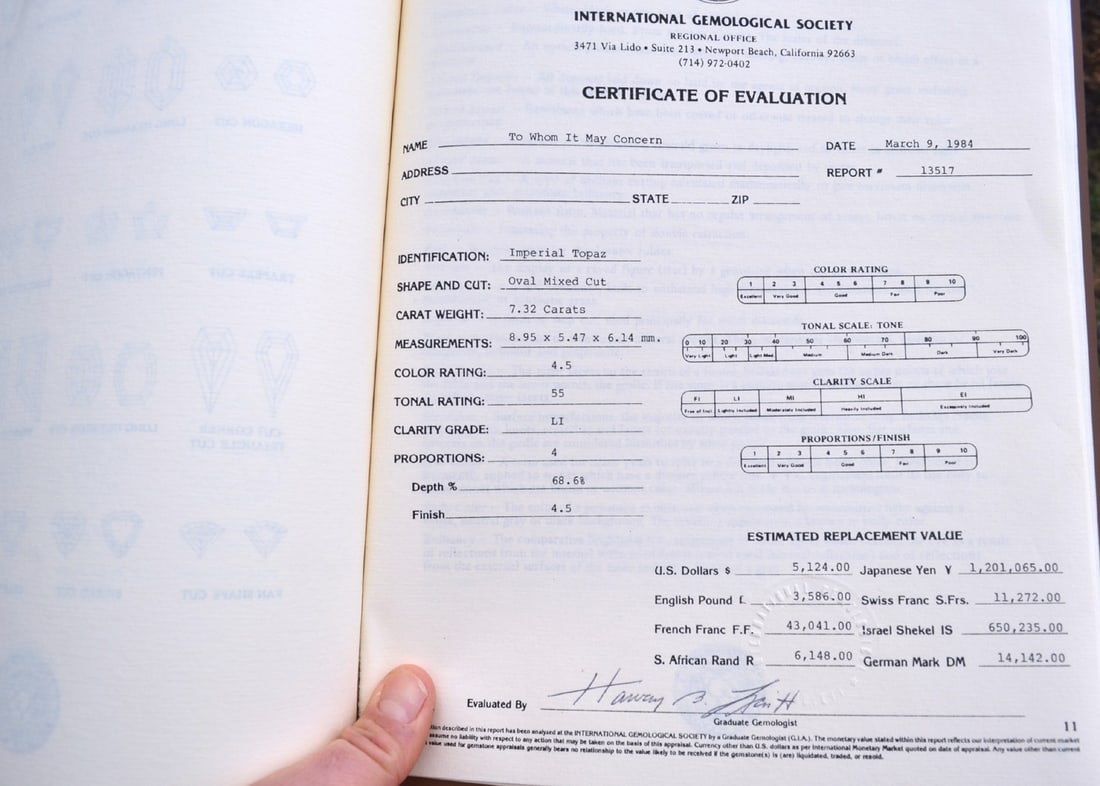 INTERNATIONAL GEMOLOGICAL SOCIETY
REGIONAL OFFICE
3471 Via Lido • Suite 213 • Newport Beach, California 92663
(714) 972-0402
CERTIFICATE OF EVALUATION
NAME To Whom It May Concern DATE March 9, 1984
ADDRESS REPORT # 13517
CITY STATE ZIP
IDENTIFICATION: Imperial Topaz
SHAPE AND CUT: Oval Mixed Cut
CARAT WEIGHT: 7.32 Carats
MEASUREMENTS: 8.95 x 5.47 x 6.14 mm.
COLOR RATING: 4.5
TONAL RATING: 55
CLARITY GRADE: LI
PROPORTIONS: 4
Depth % 68.6%
Finish 4.5
COLOR RATING
1 2 3 4 5 6 7 8 9 10
Excellent Very Good Good Fair Poor
TONAL SCALE: TONE
0 10 20 30 40 50 60 70 80 90 100
Very Light Light Light Med Medium Medium Dark Dark Very Dark
CLARITY SCALE
FI LI MI HI EI
Free of Incl. Lightly Included Moderately Included Heavily Included Excessively Included
PROPORTIONS/FINISH
1 2 3 4 5 6 7 8 9 10
Excellent Very Good Good Fair Poor
ESTIMATED REPLACEMENT VALUE
U.S. Dollars $ 5,124.00 Japanese Yen ¥ 1,201,065.00
English Pound £ 3,586.00 Swiss Franc S.Frs. 11,272.00
French Franc F.F. 43,041.00 Israel Shekel IS 650,235.00
S. African Rand R 6,148.00 German Mark DM 14,142.00
Evaluated By
Graduate Gemologist
11
described in this report has been analysed at the INTERNATIONAL GEMOLOGICAL SOCIETY by a Graduate Gemologist (G.I.A.). The monetary value stated within this report reflects our interpretation of current market
assume no liability with respect to any action that may be taken on the basis of this appraisal. Currency other than U.S. dollars as per International Monetary Market quoted on date of appraisal. Any value other than current
value used for gemstone appraisals generally bears no relationship to the value likely to be received if the gemstone(s) is (are) liquidated, traded, or resold.